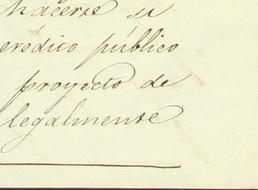 hacerse se
eródico público
proyecto de
legalmente